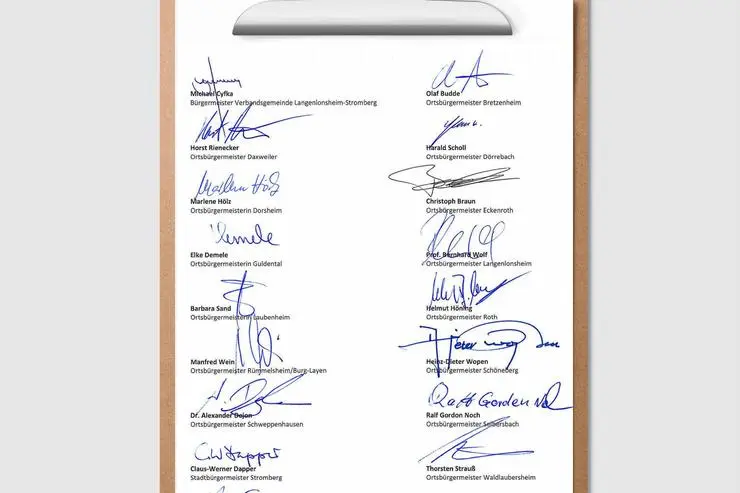 Michael Cyfka
Bürgermeister Verbandsgemeinde Langenlonsheim-Stromberg
Olaf Budde
Ortsbürgermeister Bretzenheim
Horst Rienecker
Ortsbürgermeister Daxweiler
Harald Scholl
Ortsbürgermeister Dörrebach
Marlene Hölz
Marlene Hölz
Ortsbürgermeisterin Dorsheim
Christoph Braun
Ortsbürgermeister Eckenroth
Demele
Elke Demele
Ortsbürgermeisterin Guldental
Prof. Bernhard Wolf
Ortsbürgermeister Langenlonsheim
Barbara Sand
Ortsbürgermeisterin Laubenheim
Helmut Höning
Ortsbürgermeister Roth
Manfred Wein
Ortsbürgermeister Rümmelsheim/Burg-Layen
Heinz-Dieter Wopen
Ortsbürgermeister Schöneberg
Dr. Alexander Dojon
Ortsbürgermeister Schweppenhausen
Ralf Gordon Noch
Ralf Gordon Noch
Ortsbürgermeister Seibersbach
CW Dapper
Claus-Werner Dapper
Stadtbürgermeister Stromberg
Thorsten Strauß
Ortsbürgermeister Waldlaubersheim